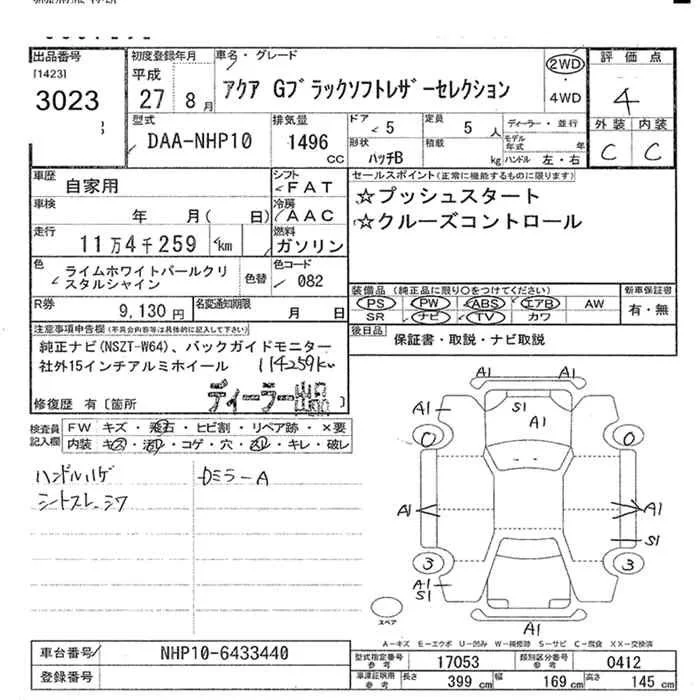 出品番号
[1423]
3023
初度登録年月
平成
27 8月
車名・グレード
アクア Gブラックソフトレザーセレクション
2WD
・
4WD
評価点
4
外装 内装
C C
型式
DAA-NHP10
排気量
1496
CC
ドア
5
形状
ハッチB
定員
5 人
積載
kg
ディーラー・並行
モデル年式 年
ハンドル 左・右
車歴
自家用
シフト
FAT
車検
年 月( 日)
冷房
AAC
走行
11万4千259 km
燃料
ガソリン
色
ライムホワイトパールクリスタルシャイン
色替
色コード
082
R券
9,130円
名変通知期限
月 日
セールスポイント(正常に機能するものに限ります)
☆プッシュスタート
☆クルーズコントロール
装備品 (純正品に限り○をつけてください)
PS PW ABS エアB AW
SR ナビ TV カワ
新車保証書
有・無
後日品
保証書・取説・ナビ取説
注意事項申告欄
純正ナビ(NSZT-W64)、バックガイドモニター
社外15インチアルミホイール 114259km
ディーラー出品
修復歴 有 [箇所 ]
検査員記入欄
FW キズ・飛石・ヒビ割・リペア跡・×要
内装 キズ・汚レ・コゲ・穴・スレ・キレ・破レ
ハンドルハゲ
シートスレ、シワ
Dミラー A
A1 A1
A1 S1 A1
0 0
A1 A1
S1
3 3
A1
S1
A1
スペア
A-キズ E-エクボ U-凹み W-補修跡 S-サビ C-腐食 XX-交換済
車台番号
NHP10-6433440
登録番号
型式指定番号
参考
17053
類別区分番号
参考
0412
車庫証明用
参考
長さ 399 cm 幅 169 cm 高さ 145 cm